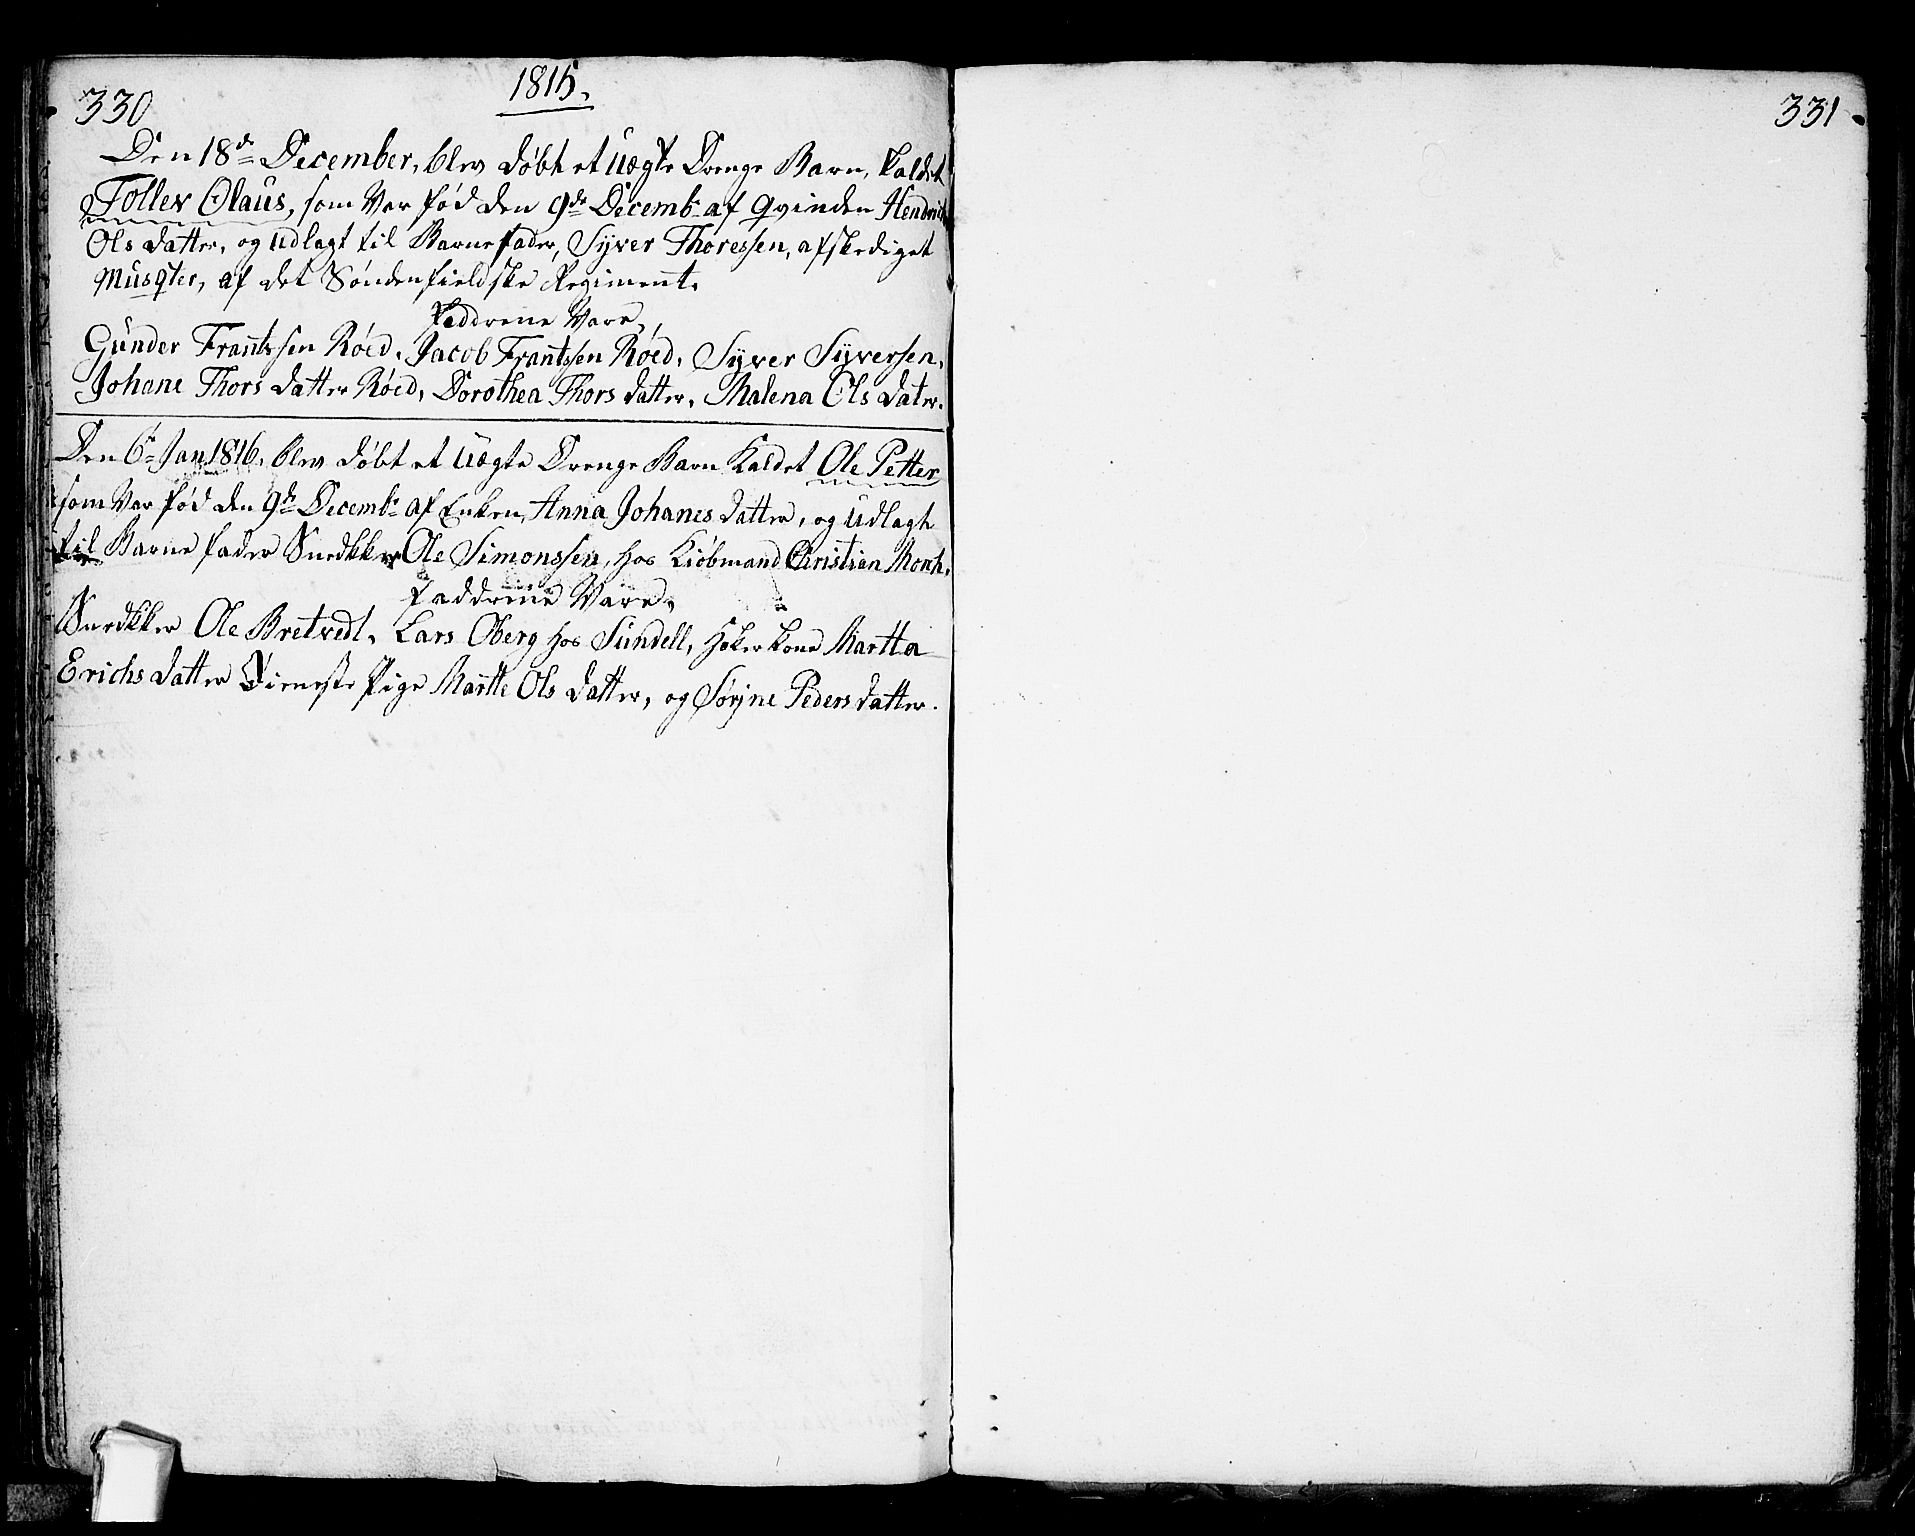 330
1815.
Den 18de December, blev døbt et uægte Drenge Barn, kaldet
Tollev Olaus, som var fød den 9de Decembr af Qvinden
Ols datter, og udlagt til Barnefader, Syver Thoressen, afskediget
Musqter, af det Søndenfieldske Regiment.
Faddrene vare,
Gunder Frantssen Røed, Jacob Frantssen Røed, Syver Syversen,
Johane Thors datter Røed, Dorothea Thors datter, Malena Ols dater.
Den 6te Jan 1816, blev døbt et uægte Drenge Barn kaldet Ole Petter
som var fød den 9de Decembr af Enken, Anna Johanes datter, og udlagt
til Barne fader Snedkker Ole Simonssen, hos Kiøbmand Christian Monh.
Faddrene vare,
Snedkker Ole Bretvedt, Lars Oberg hos Sundell, Høker kone Martta
Erichs datter Tieneste Pige Martte Ols datter, og Sørine Peders datter.
331